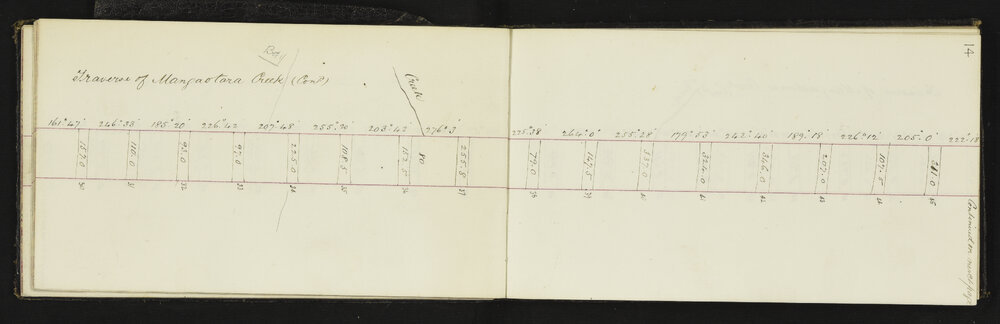 14
Traverse of Mangaotara Creek (Cont)
Creek
161°47' 246°33 185°20' 226°42 207°48 255°20 203°42 276°3 225°38 264°0' 255°28' 179°53 242°40 189°18 226°12 205°0' 222°18
157.0 110.0 93.0 97.0 235.0 108.5 182.5 80 255.8 79.0 147.5 337.0 324.0 346.0 207.0 107.5 381.0
30 31 32 33 34 35 36 37 38 39 40 41 42 43 44 45
Continued on next page